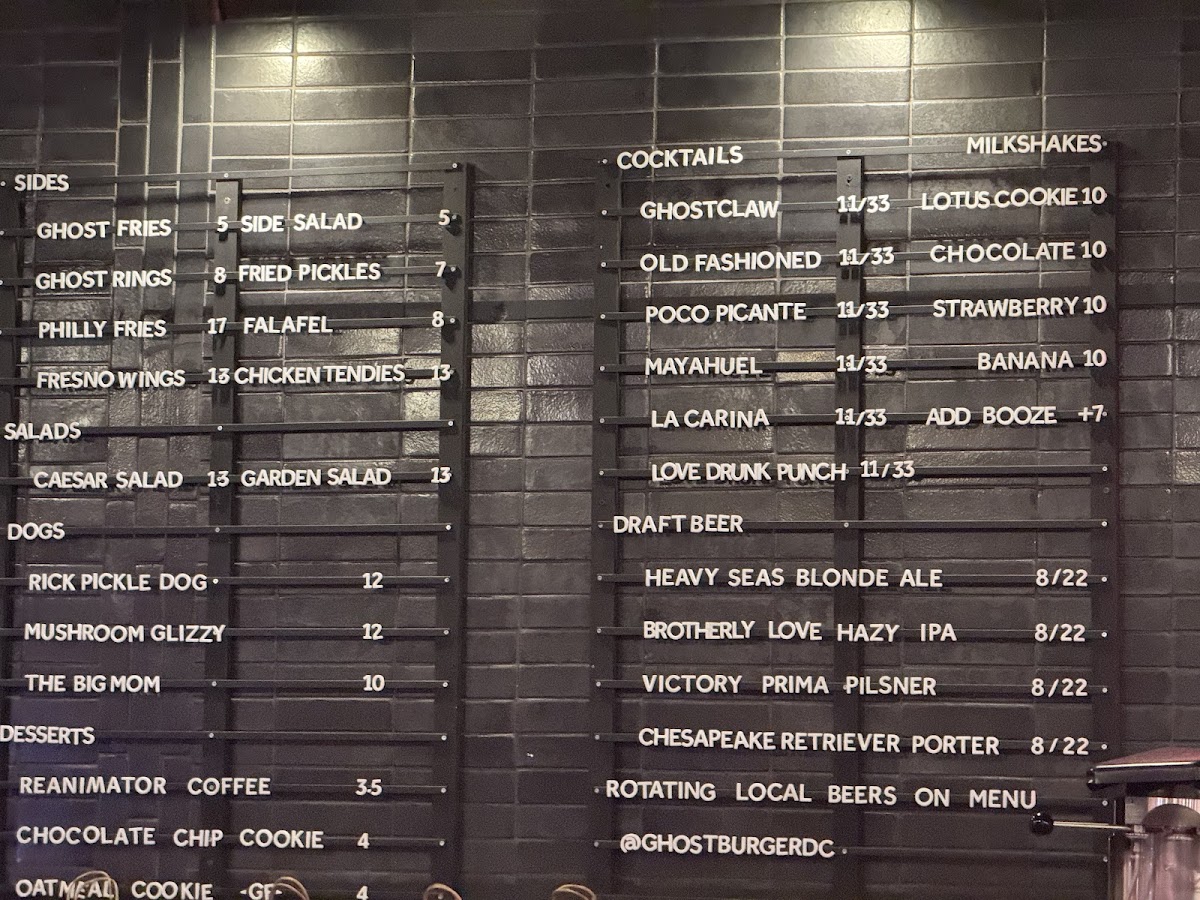 SIDES
GHOST FRIES 5 SIDE SALAD 5
GHOST RINGS 8 FRIED PICKLES 7
PHILLY FRIES 17 FALAFEL 8
FRESNO WINGS 13 CHICKEN TENDIES 13
SALADS
CAESAR SALAD 13 GARDEN SALAD 13
DOGS
RICK PICKLE DOG 12
MUSHROOM GLIZZY 12
THE BIG MOM 10
DESSERTS
REANIMATOR COFFEE 3.5
CHOCOLATE CHIP COOKIE 4
OATMEAL COOKIE -GF- 4
COCKTAILS MILKSHAKES
GHOSTCLAW 11/33 LOTUS COOKIE 10
OLD FASHIONED 11/33 CHOCOLATE 10
POCO PICANTE 11/33 STRAWBERRY 10
MAYAHUEL 11/33 BANANA 10
LA CARINA 11/33 ADD BOOZE +7
LOVE DRUNK PUNCH 11/33
DRAFT BEER
HEAVY SEAS BLONDE ALE 8/22
BROTHERLY LOVE HAZY IPA 8/22
VICTORY PRIMA PILSNER 8/22
CHESAPEAKE RETRIEVER PORTER 8/22
ROTATING LOCAL BEERS ON MENU
@GHOSTBURGERDC